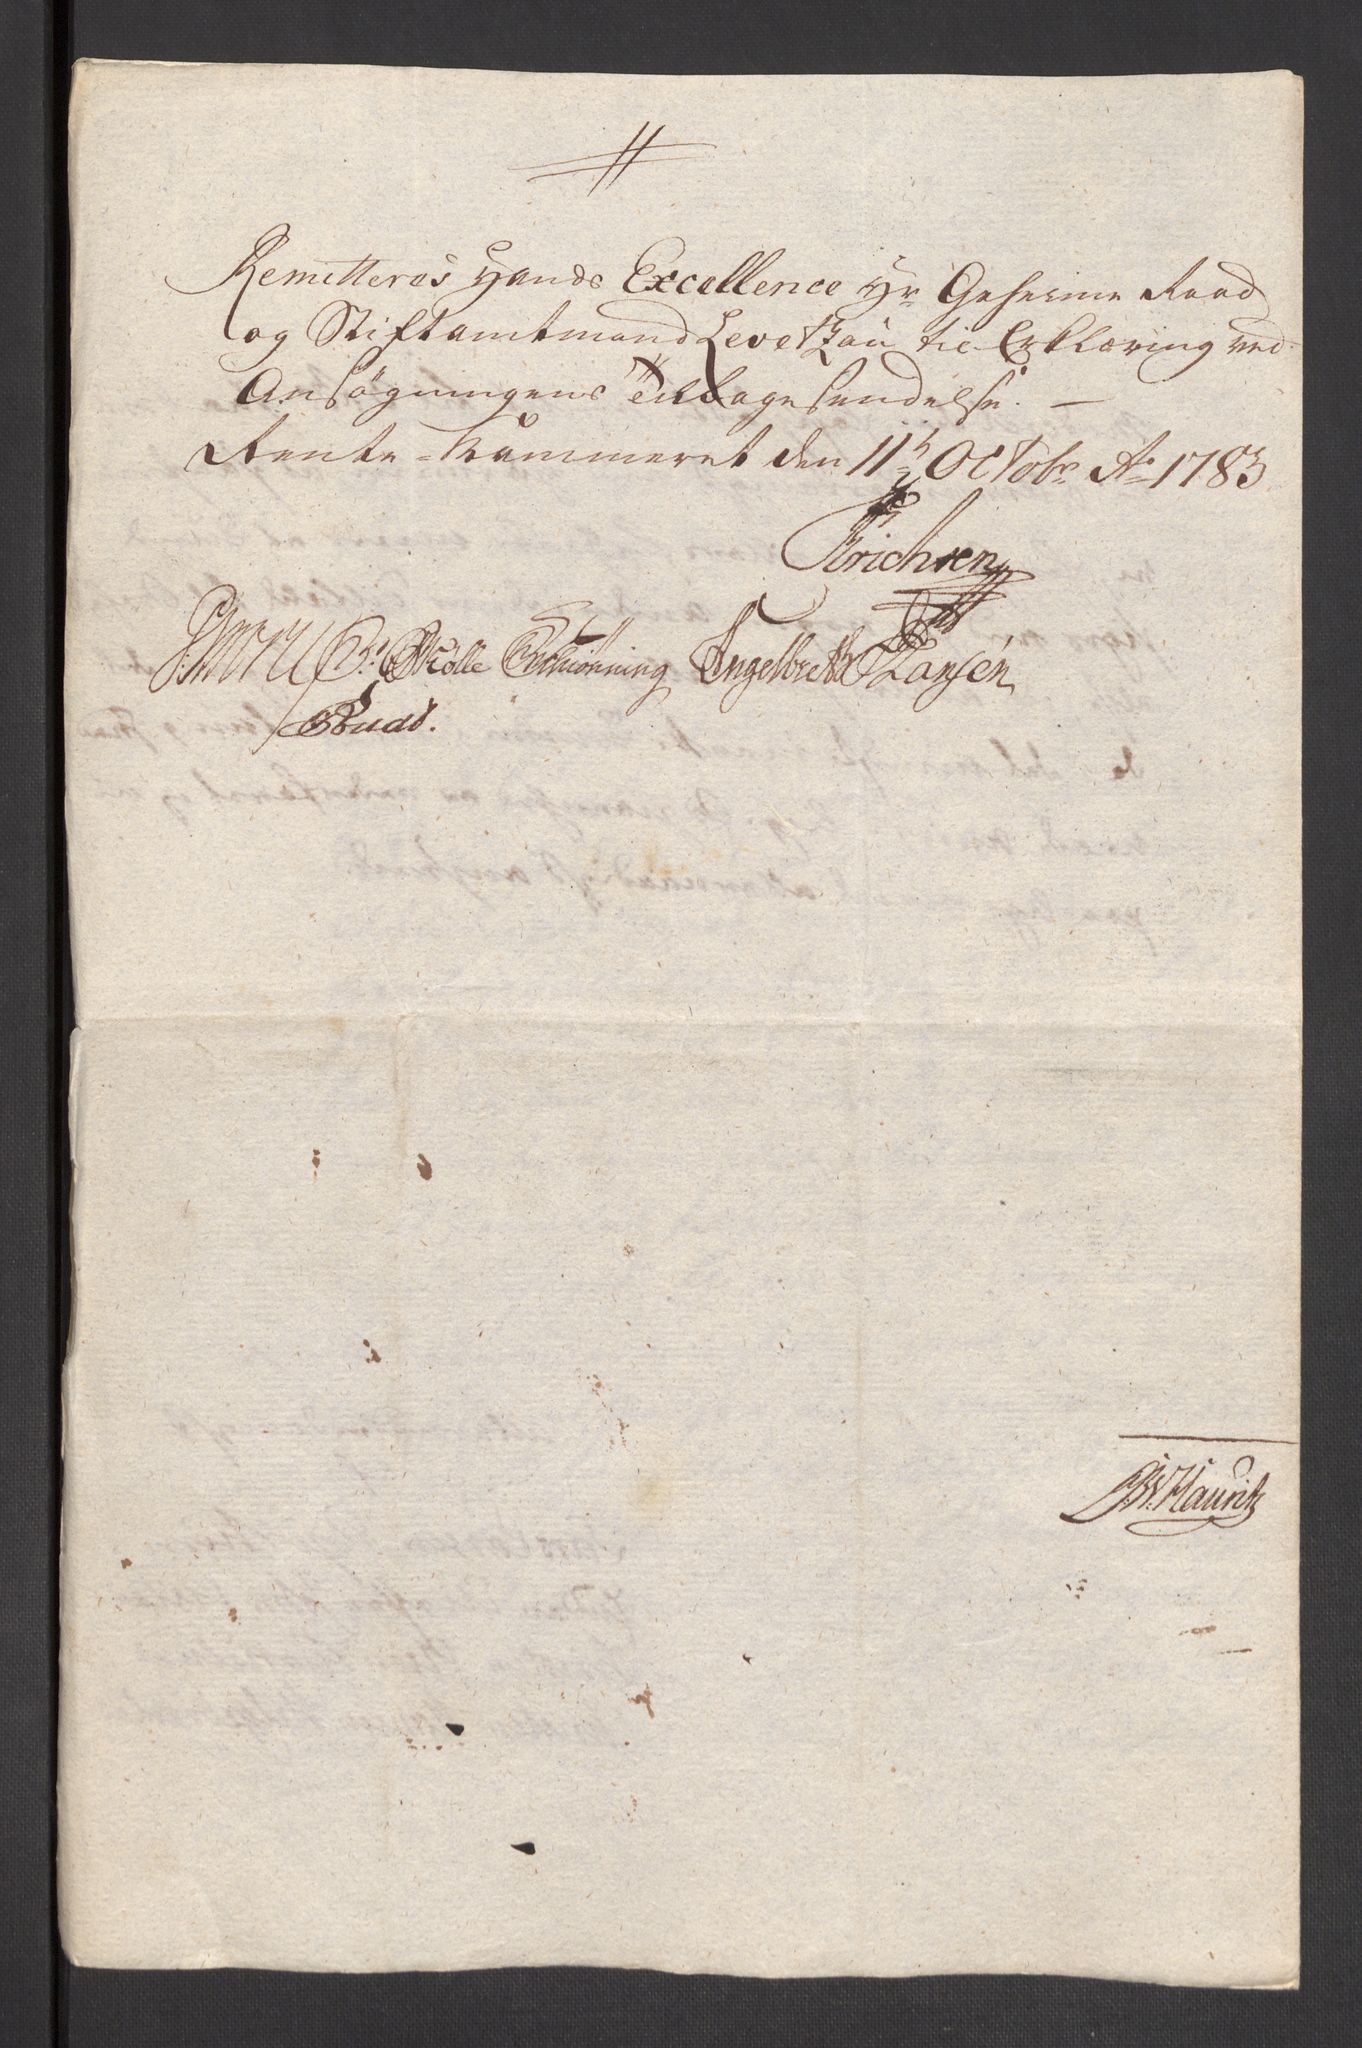 Remitteres Hands Excellence Hr Geheime Raad
og Stiftamtmand Levetzau til Erklæring ved
Ansøgningens tilbagesendelse. —
Rente-Kammeret den 11te Octobr Ao 1783
Erichsen
Mølle Schiønning Engelbreth Hansén
J. W. Hauritz